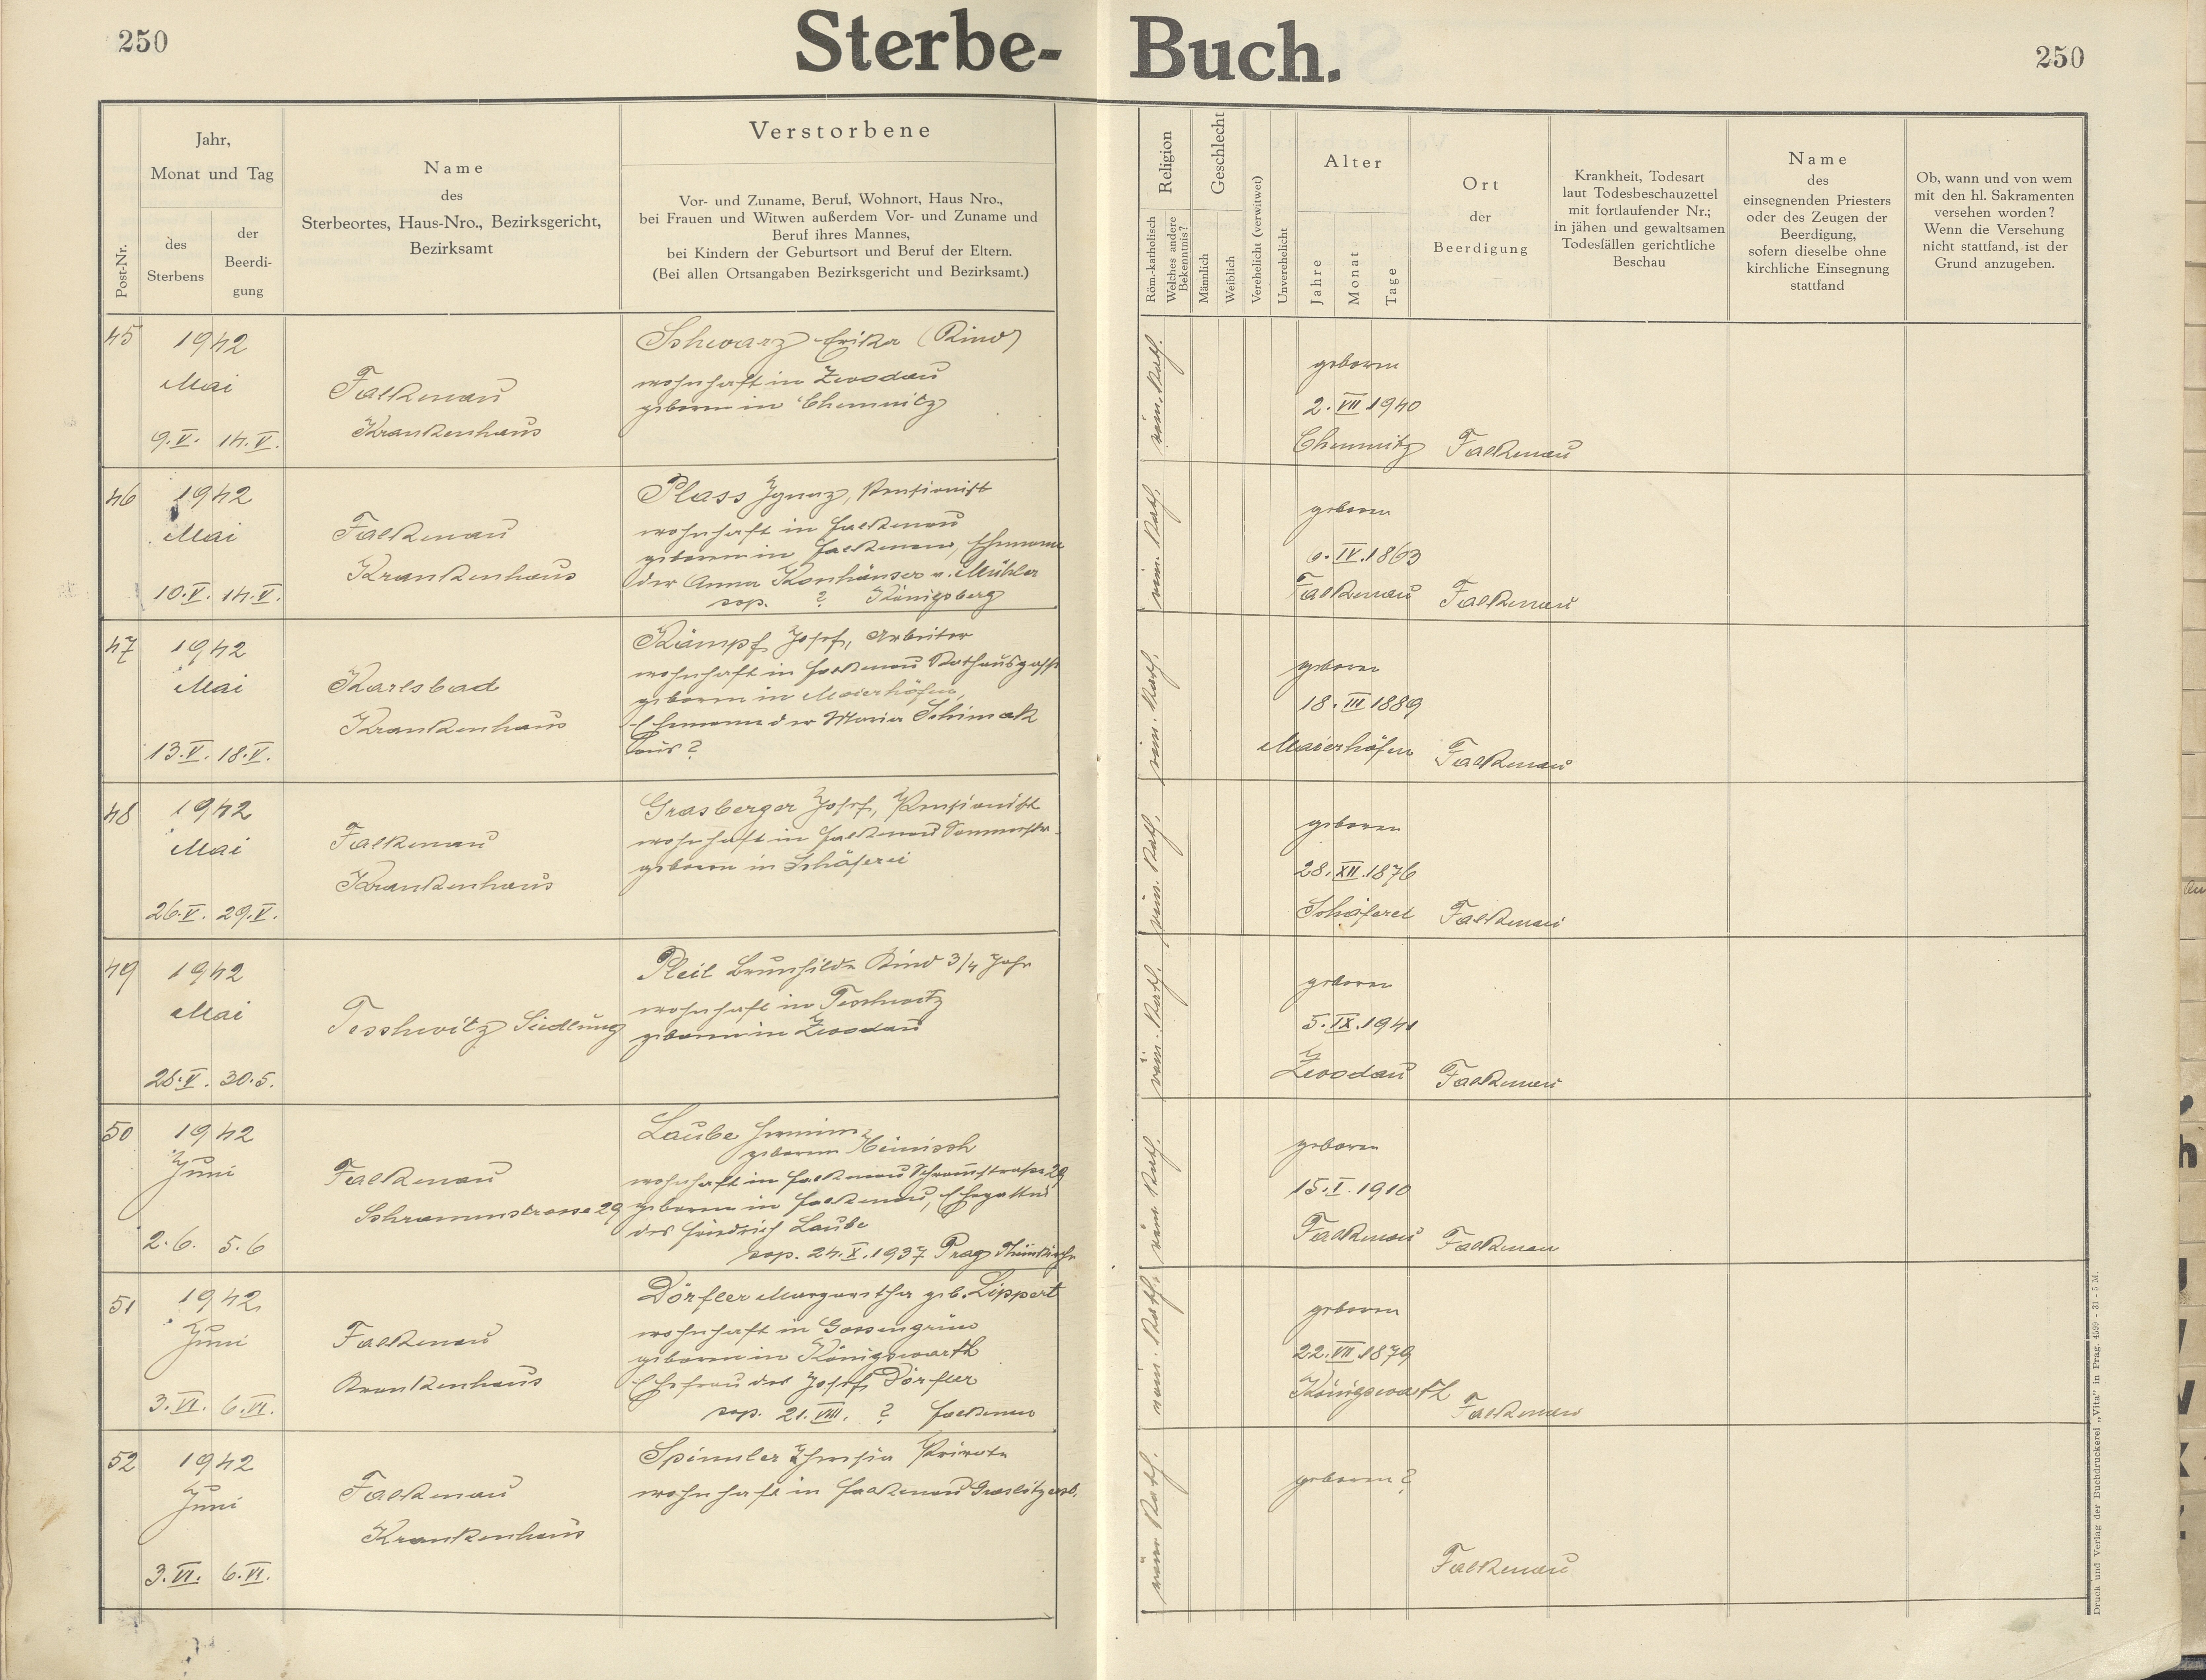 250
Sterbe- Buch.
250
Post-Nr.
Jahr,
Monat und Tag
des
Sterbens
der
Beerdi-
gung
Name
des
Sterbeortes, Haus-Nro., Bezirksgericht,
Bezirksamt
Verstorbene
Vor- und Zuname, Beruf, Wohnort, Haus Nro.,
bei Frauen und Witwen außerdem Vor- und Zuname und
Beruf ihres Mannes,
bei Kindern der Geburtsort und Beruf der Eltern.
(Bei allen Ortsangaben Bezirksgericht und Bezirksamt.)
Religion
Röm.-katholisch
Welches andere
Bekenntnis?
Geschlecht
Männlich
Weiblich
Verehelicht (verwitwet)
Unverehelicht
Alter
Jahre
Monate
Tage
Ort
der
Beerdigung
Krankheit, Todesart
laut Todesbeschauzettel
mit fortlaufender Nr.;
in jähen und gewaltsamen
Todesfällen gerichtliche
Beschau
Name
des
einsegnenden Priesters
oder des Zeugen der
Beerdigung,
sofern dieselbe ohne
kirchliche Einsegnung
stattfand
Ob, wann und von wem
mit den hl. Sakramenten
versehen worden?
Wenn die Versehung
nicht stattfand, ist der
Grund anzugeben.
45
1942
Mai
9.V. 14.V.
Falkenau
Krankenhaus
Schwarz Erika (Kind)
wohnhaft in Zwodau
geboren in Chemnitz
röm. kath.
geboren
2. VII 1940
Chemnitz
Falkenau
46
1942
Mai
10.V. 14.V.
Falkenau
Krankenhaus
Plass Ignaz, Pensionist
wohnhaft in Falkenau
geboren in Falkenau, Ehemann
der Anna Konhäuser a. Mühler
cop. ? Königsberg
röm. kath.
geboren
IV. 1863
Falkenau
Falkenau
47
1942
Mai
13.V. 18.V.
Karlsbad
Krankenhaus
Kämpf Josef, Arbeiter
wohnhaft in Falkenau Rathausgasse
geboren in Maierhöfen,
Ehemann der Maria Schimak
aus ?
röm. kath.
geboren
18. III 1889
Maierhöfen
Falkenau
48
1942
Mai
26.V. 29.V.
Falkenau
Krankenhaus
Grasberger Josef, Pensionist
wohnhaft in Falkenau Sommerstr.
geboren in Schäferei
röm. kath.
geboren
28. XII. 1876
Schäferei
Falkenau
49
1942
Mai
28.V. 30.5.
Tesshwitz Siedlung
Pleil Brunhilde Kind 3/4 Jahr
wohnhaft in Teschwitz
geboren in Zwodau
röm. kath.
geboren
5. IX. 1941
Zwodau
Falkenau
50
1942
Juni
2.6. 5.6
Falkenau
Schrammstrasse 29
Laube Hermine
geborene Heinisch
wohnhaft in Falkenau Schrammstrasse 29
geboren in Falkenau, Ehegattin
des Friedrich Laube
cop. 24.X.1937 Prag Theinkirche
röm kath.
geboren
15. I. 1910
Falkenau
Falkenau
51
1942
Juni
3.VI. 6.VI.
Falkenau
Krankenhaus
Dörfler Margaretha geb. Lippert
wohnhaft in Gossengrün
geboren in Königswarth
Ehefrau des Josef Dörfler
cop. 21. VIII. ? Falkenau
röm. kath.
geboren
22. VII 1879
Königswarth
Falkenau
52
1942
Juni
3.VI. 6.VI.
Falkenau
Krankenhaus
Spinnler Theresia Private
wohnhaft in Falkenau
röm kath.
geboren ?
Falkenau
Druck und Verlag der Buchdruckerei „Vita" in Prag. 4599 - 31 - 5 M.